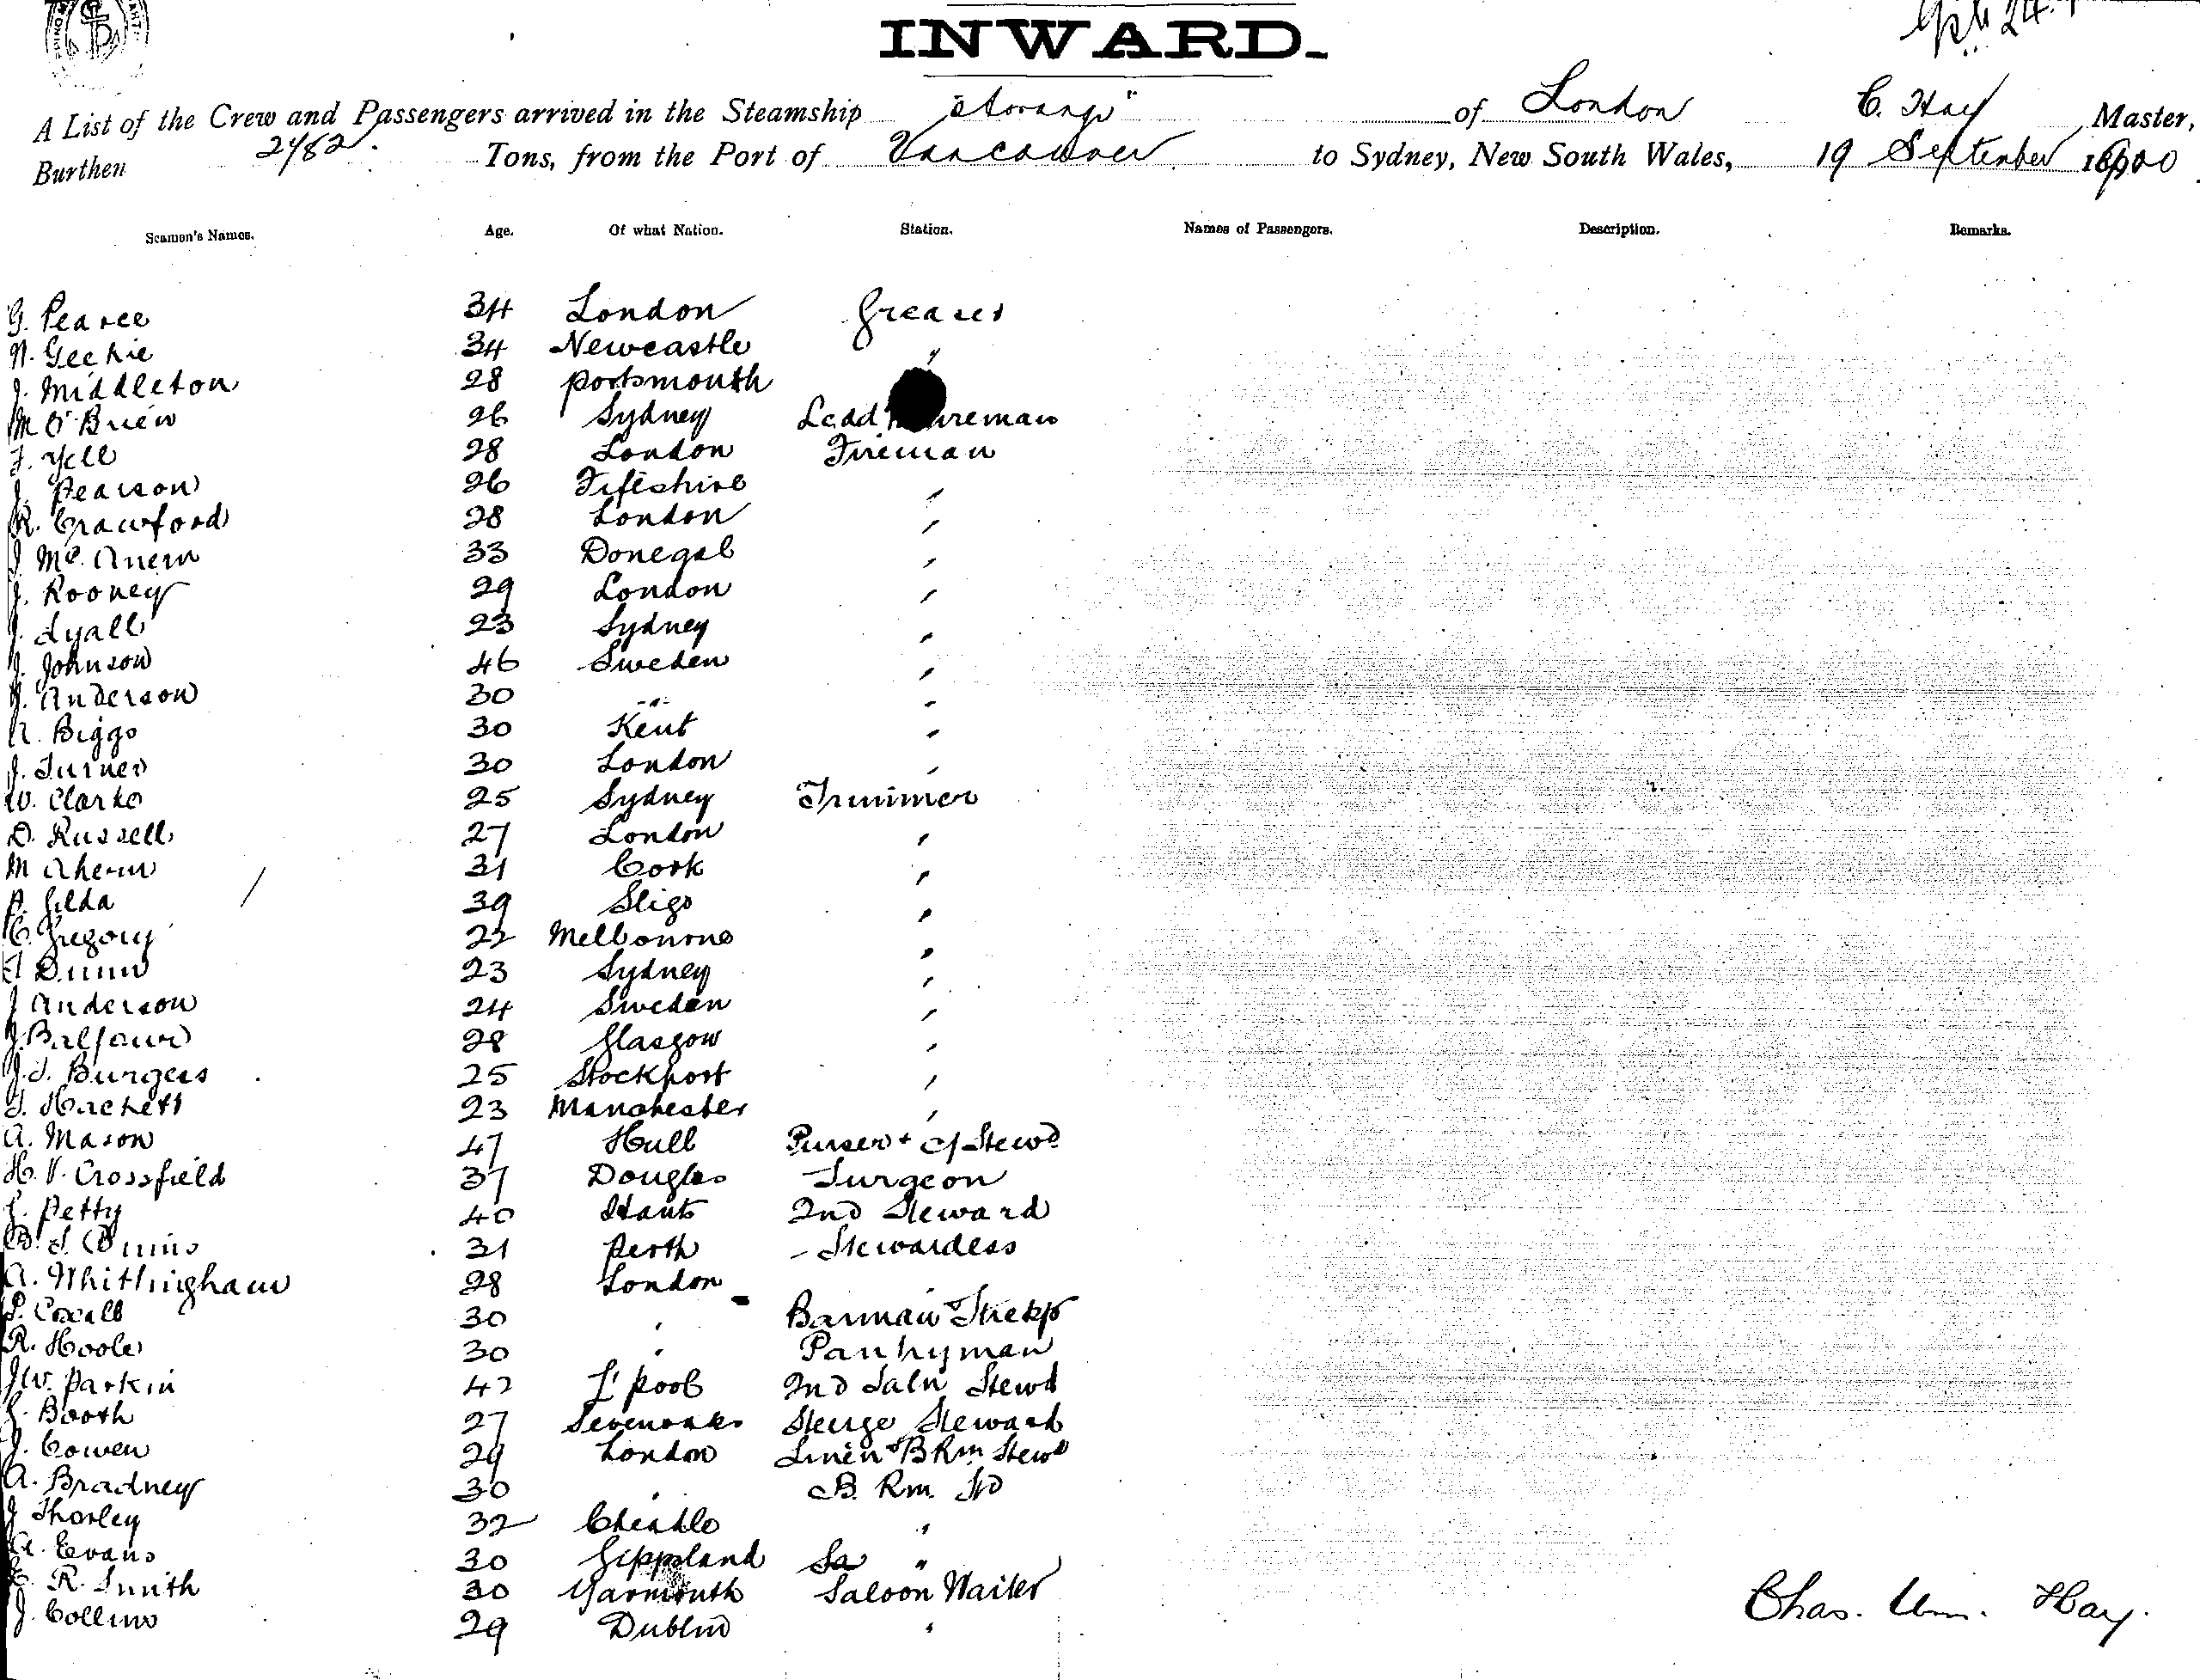 INWARD.
A List of the Crew and Passengers arrived in the Steamship "Aorangi" of London C. Hay Master,
Burthen 2782. Tons, from the Port of Vancouver to Sydney, New South Wales, 19 September 1900
Seamen's Names. Age. Of what Nation. Station. Names of Passengers. Description. Remarks.
G. Pearce 34 London Greaser
N. Geekie 34 Newcastle "
J. Middleton 28 Portsmouth
M O'Brien 26 Sydney Leadg Fireman
J. Yell 28 London Fireman
J. Pearson 26 Fifeshire "
R. Crawford 28 London "
J. Mc. 33 Donegal "
J. Rooney 29 London "
J. Lyall 23 Sydney "
J. Johnson 46 Sweden "
Anderson 30 " "
Biggs 30 Kent "
J. Turner 30 London "
W. Clarke 25 Sydney Trimmer
D. Russell 27 London "
M Ahern 31 Cork "
Gilda 39 Sligo "
C. Gregory 22 Melbourne "
Dunn 23 Sydney "
J Anderson 24 Sweden "
J. Balfour 28 Glasgow "
J. J. Burgess 25 Stockport "
J. Hackett 23 Manchester "
A. Mason 47 Hull Purser + C/Stewd
H. V. Crossfield 37 Douglas Surgeon
Petty 40 Hants 2nd Steward
31 Perth Stewardess
A. Whittingham 28 London "
Coxall 30 " Barman + Strekpr
R. Hoole 30 " Pantryman
J W. Parkin 42 L'pool 2nd Saln Stewd
Booth 27 Sevenoaks Steerge Steward
J. Cowen 29 London Linen + B Rm Stewd
A. Bradney 30 " B. Rm. Sd
J Thorley 32 Cheadle "
Evans 30 Gippsland Sa "
R. Smith 30 Yarmouth Saloon Waiter
J. Collins 29 Dublin "
Chas. Wm. Hay.